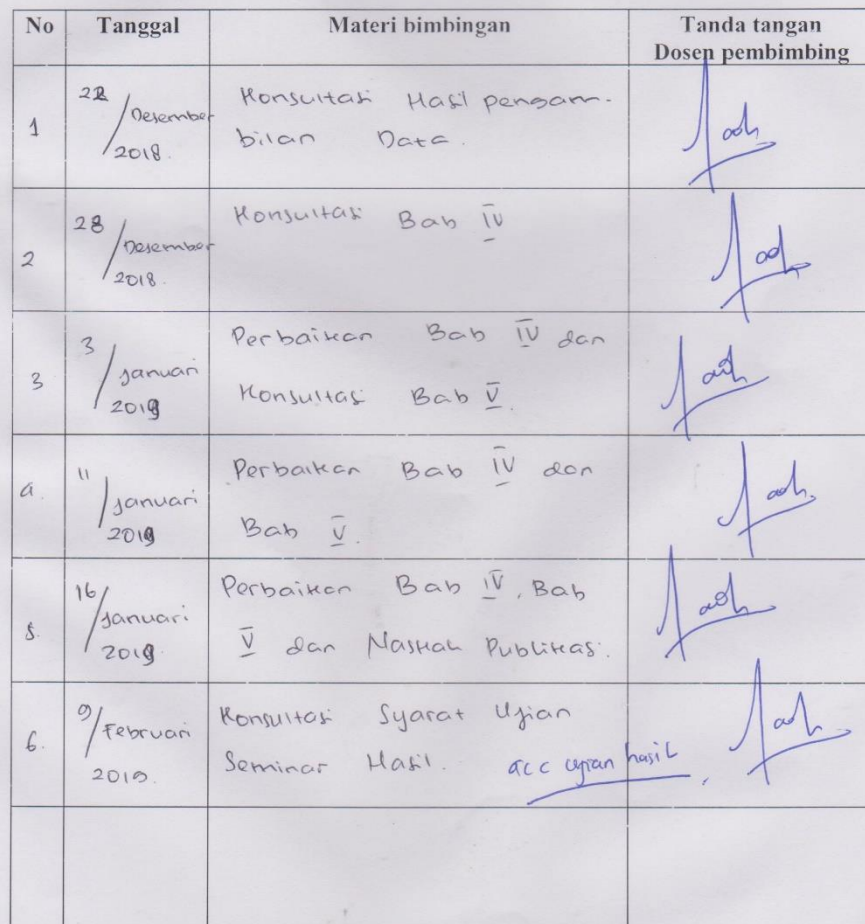 No Tanggal Materi bimbingan Tanda tangan
Dosen pembimbing
1 22/Desember 2018. Konsultasi Hasil pengam-
bilan Data.
2 28/Desember 2018. Konsultasi Bab IV
3 3/Januari 2019 Perbaikan Bab IV dan
Konsultasi Bab V.
4. 11/Januari 2019 Perbaikan Bab IV dan
Bab V.
5. 16/Januari 2019 Perbaikan Bab IV, Bab
V dan Naskah Publikasi.
6. 9/Februari 2019. Konsultasi Syarat Ujian
Seminar Hasil. acc ujian hasil